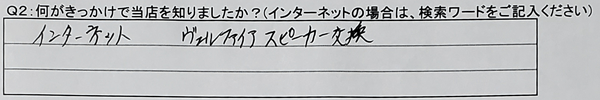 Q2:何がきっかけで当店を知りましたか?(インターネットの場合は、検索ワードをご記入ください)
インターネット　ヴェルファイア スピーカー交換